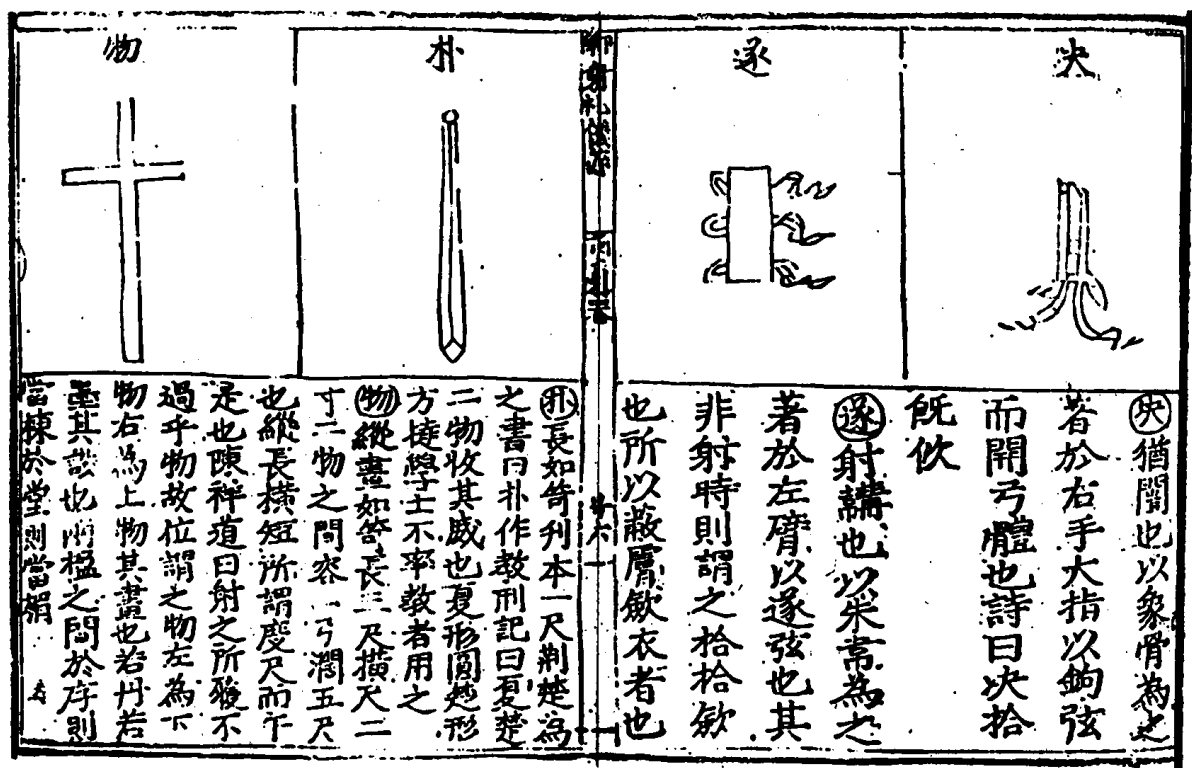 決
決猶闓也以象骨為之
著於右手大指以鉤弦
而開弓體也詩曰決拾
既佽
遂
遂射韝也以朱韋為之
著於左臂以遂弦也其
非射時則謂之拾拾斂
也所以蔽膚斂衣者也
鄉射礼儀節
朴
朴長如笴刊本一尺荊楚為
之書曰朴作教刑記曰夏楚
二物收其威也夏形圓楚形
方撻學士不率教者用之
物
物縱畫如笴長三尺橫尺二
寸二物之間容一弓濶五尺
也縱長橫短所謂度尺而午
是也陳祥道曰射之所履不
過乎物故位謂之物左為下
物右為上物其畫也若丹若
墨其說也兩楹之間於序則
當棟於堂則當楣